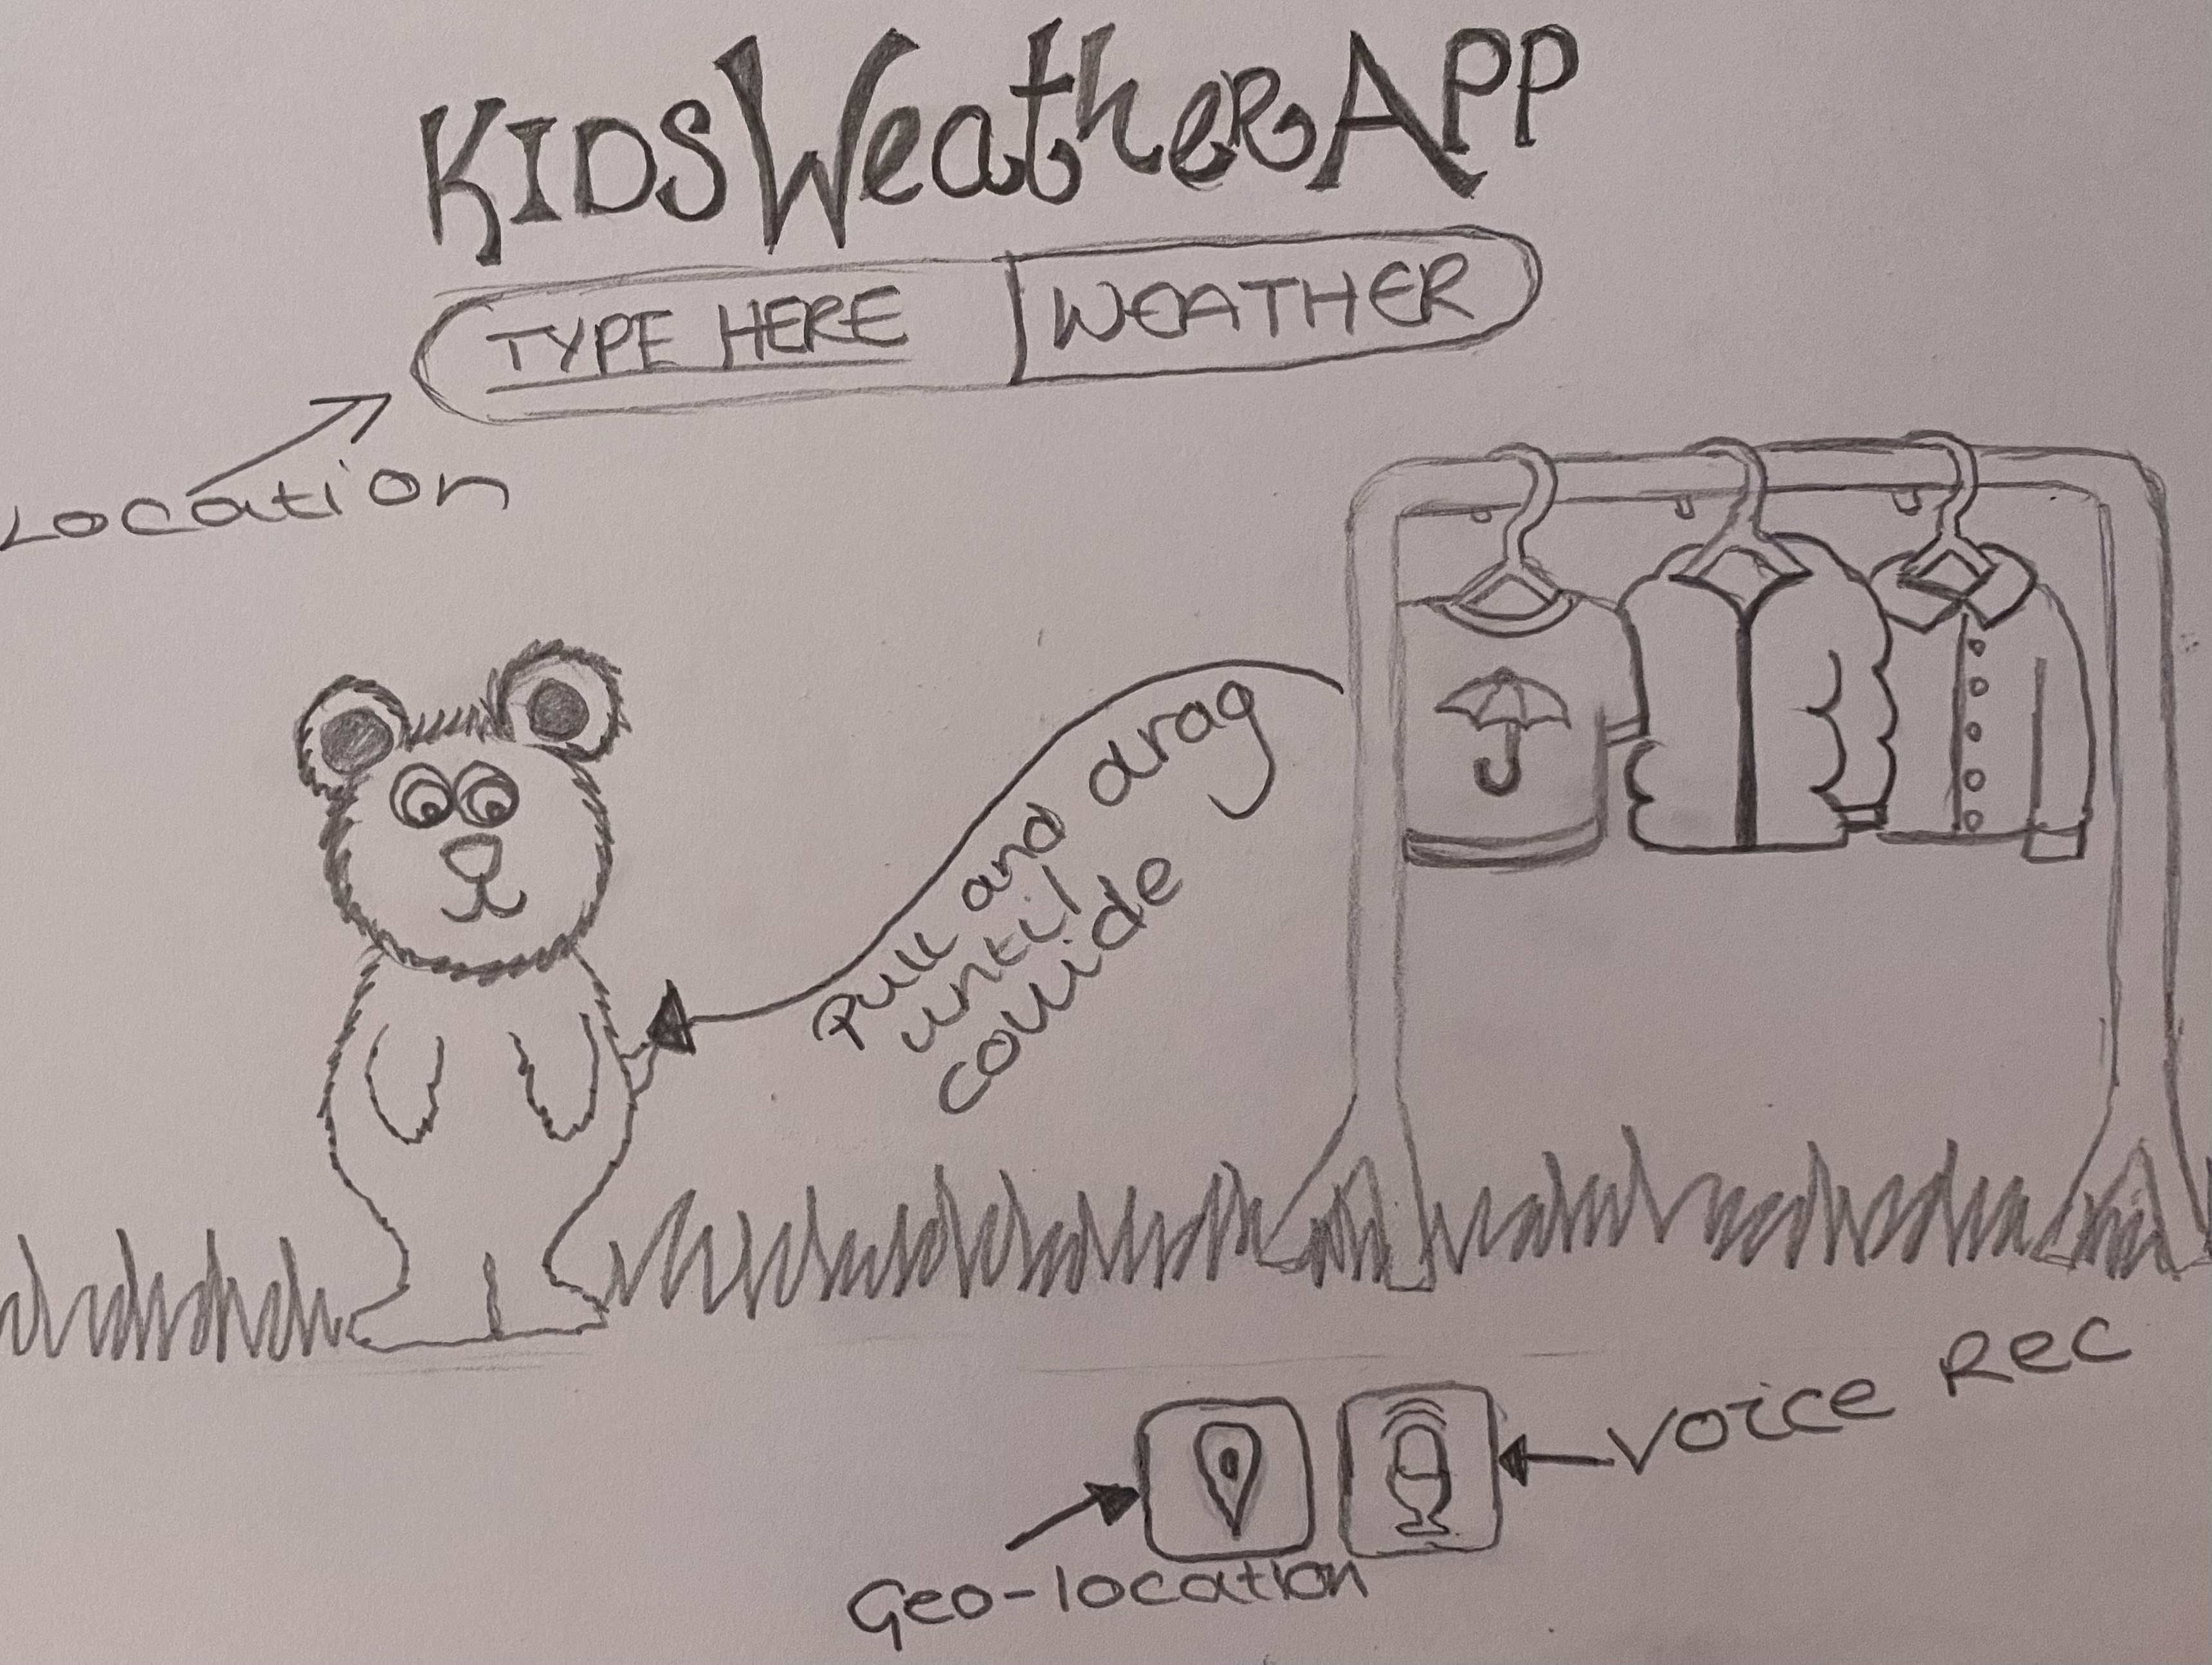 KIDSWeatheRAPP
TYPE HERE WEATHER
Location
Pull and drag
until
collide
Voice Rec
Geo-location